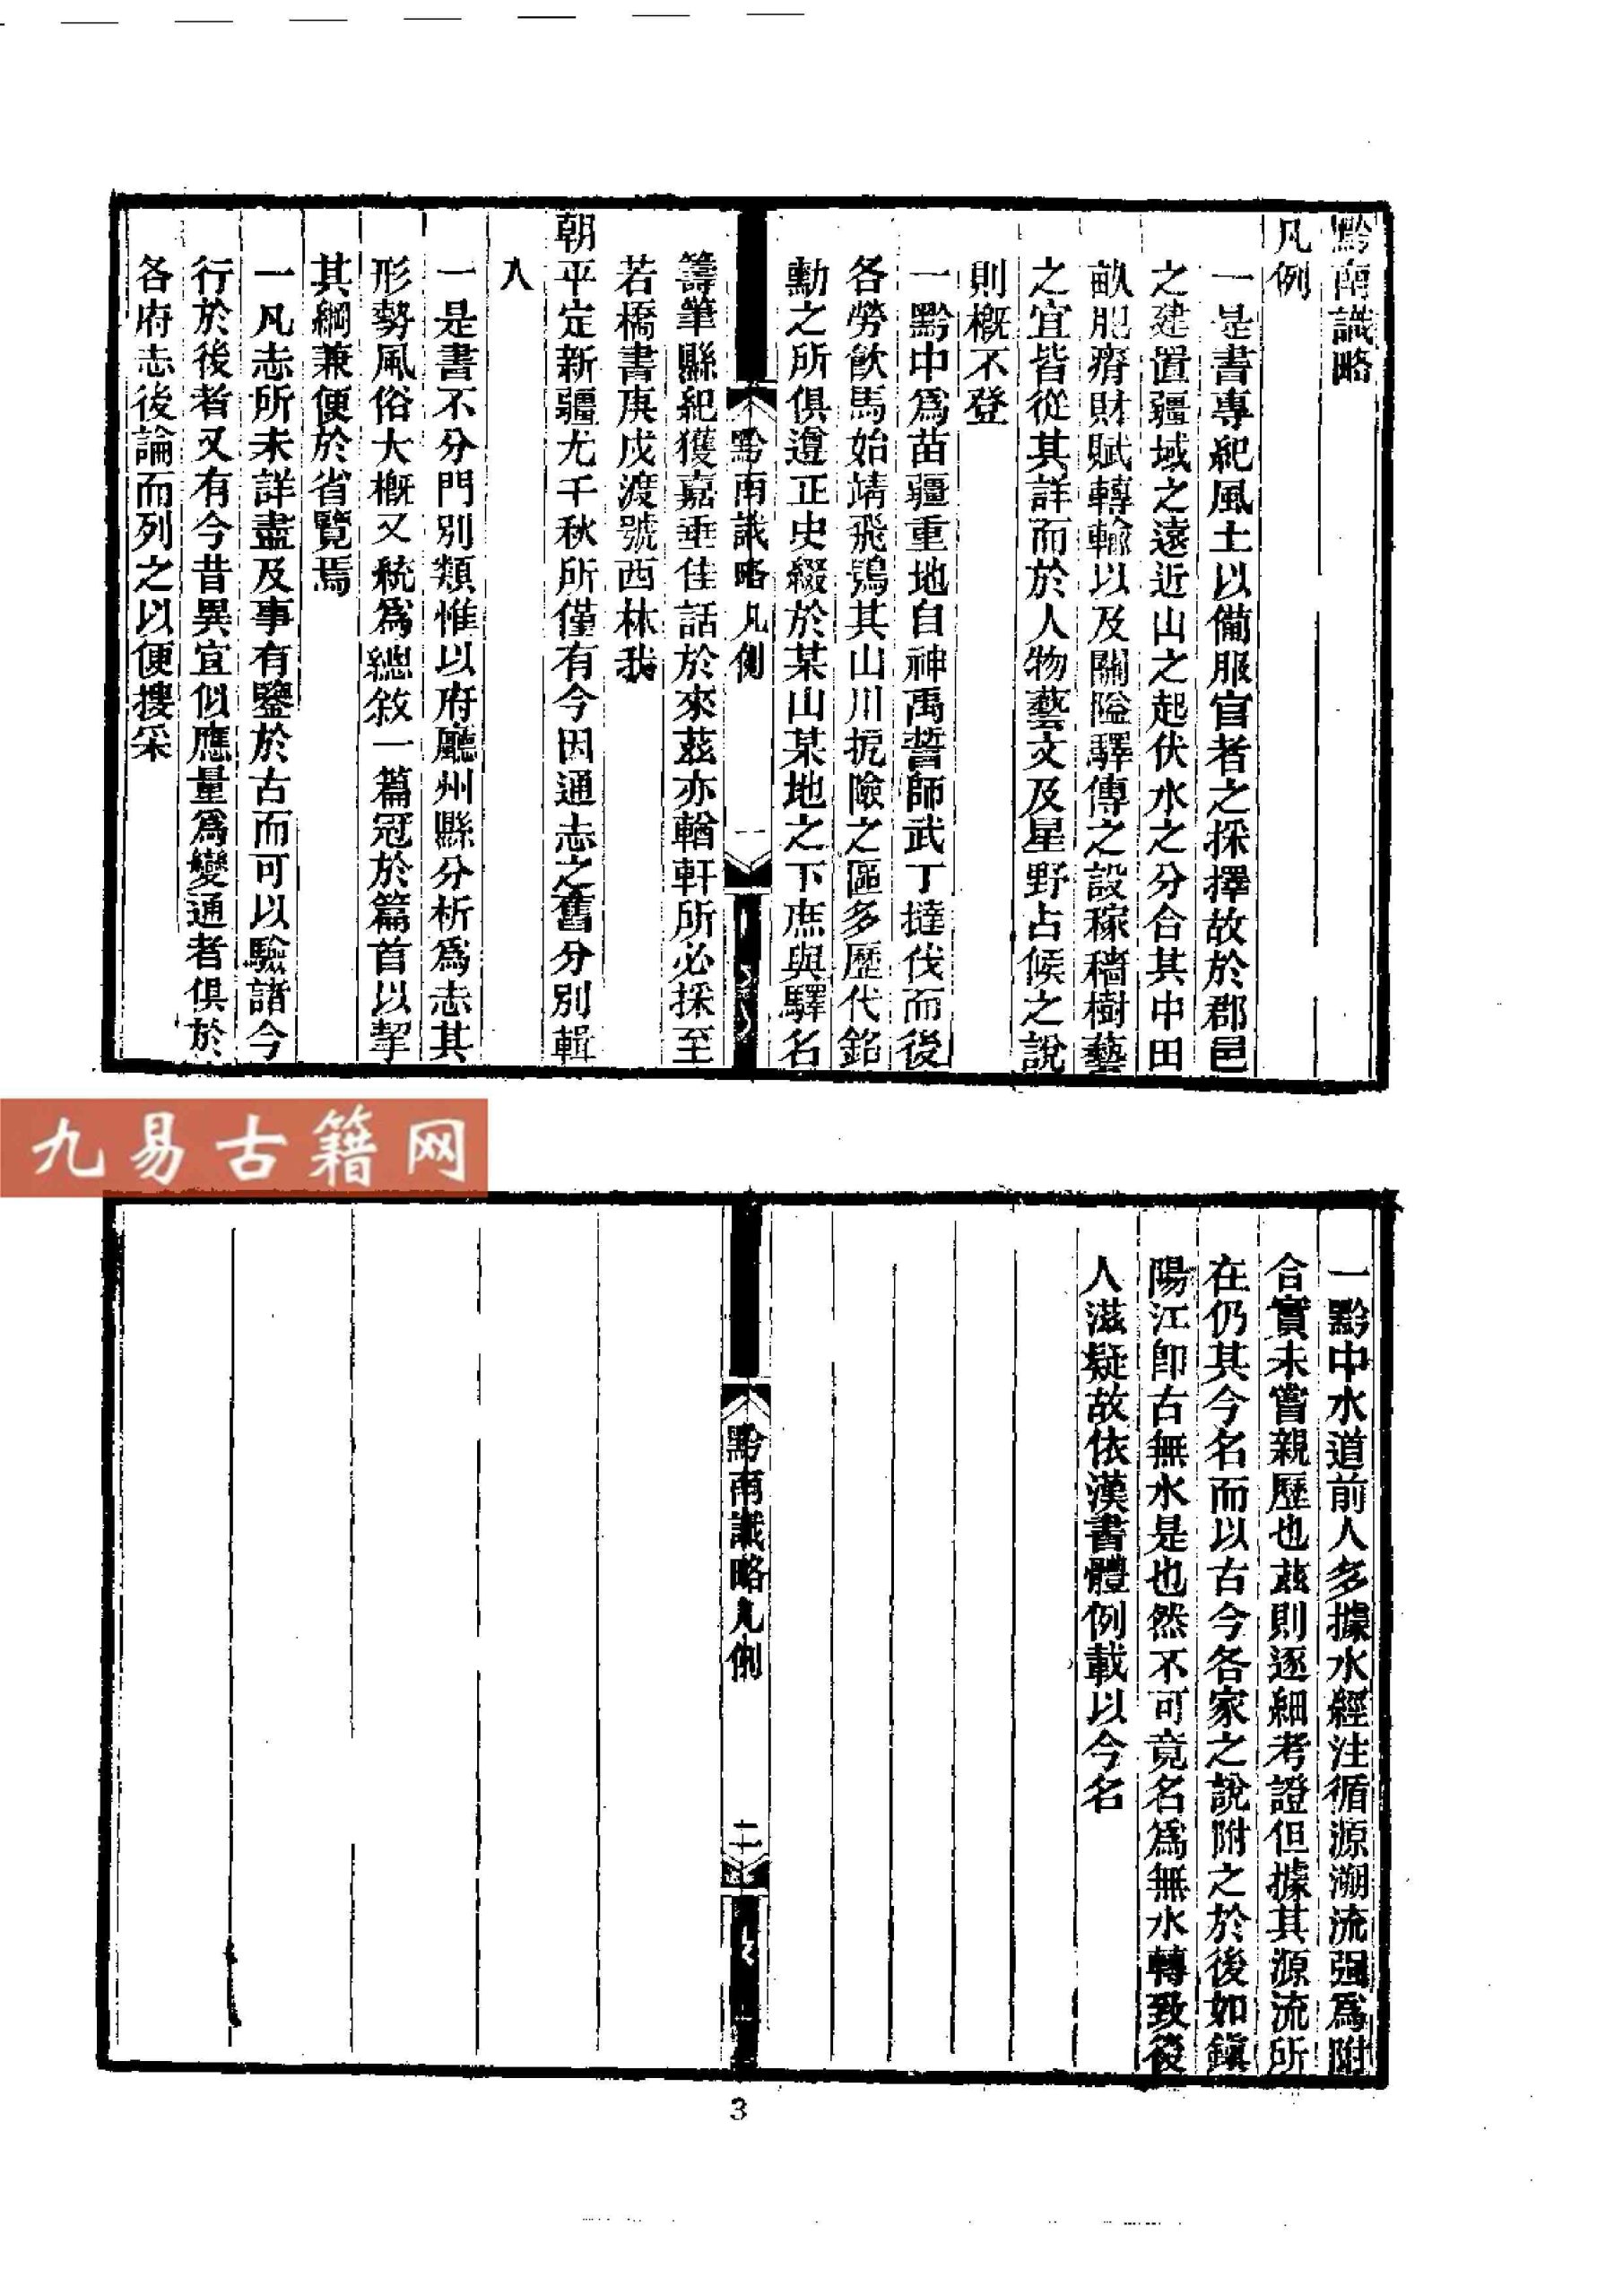 黔南識略
凡例
一是書專紀風土以備服官者之採擇故於郡邑
之建置疆域之遠近山之起伏水之分合其中田
畝肥瘠財賦轉輸以及關隘驛傳之設稼穡樹藝
之宜皆從其詳而於人物藝文及星野占候之說
則概不登
一黔中爲苗疆重地自神禹誓師武丁撻伐而後
各勞飲馬始靖飛鴞其山川扼險之區多歷代銘
勳之所俱遵正史綴於某山某地之下庶與驛名
黔南識略凡例
一
籌筆縣紀獲嘉垂佳話於來茲亦輶軒所必採至
若橋書庚戌渡號西林我
朝平定新疆尤千秋所僅有今因通志之舊分別輯
入
一是書不分門別類惟以府廳州縣分析爲志其
形勢風俗大概又統爲總敘一篇冠於篇首以挈
其綱兼便於省覽焉
一凡志所未詳盡及事有鑒於古而可以驗諸今
行於後者又有今昔異宜似應量爲變通者俱於
各府志後論而列之以便搜采
九易古籍网
一黔中水道前人多據水經注循源溯流强爲附
合實未嘗親歷也茲則逐細考證但據其源流所
在仍其今名而以古今各家之說附之於後如鎮
陽江卽古無水是也然不可竟名爲無水轉致後
人滋疑故依漢書體例載以今名
黔南識略凡例
二
3